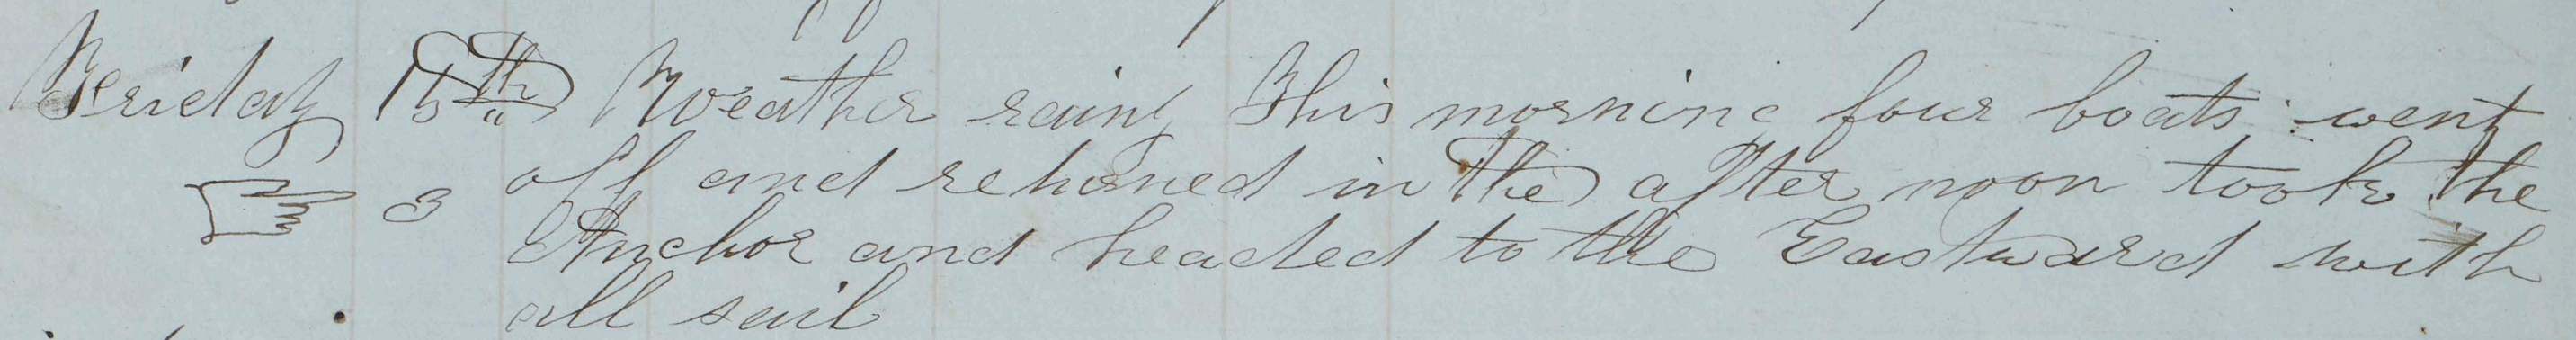 Friday 15th Weather rainy This morning four boats went
☞ 3 off and returned in the after noon took the
Anchor and headed to the Eastward with
all sail